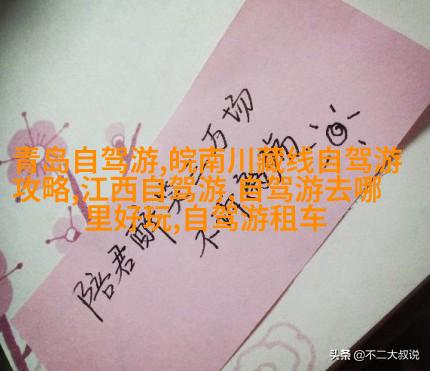 青岛自驾游,皖南川藏线自驾游
攻略,江西自驾游,自驾游去哪
里好玩,自驾游租车
陪君醉笑三万场
不
头条 @不二大叔说